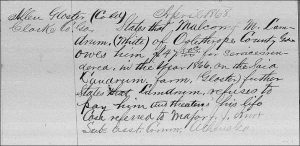 Allen Gloster, (Col'd) April 1868
Clarke Co Ga. States that, Malcom M. Lan
drum, (White) of Oglethorpe County Ga
owes him $42 for corn
dered, in the Year 1866, on the Said
Landrum, farm, Gloster, further
States that, Landrum, refuses to
pay him and threatens his life
Case referred to Major J. J. Knox
Sub Asst. Comm. Athens Ga